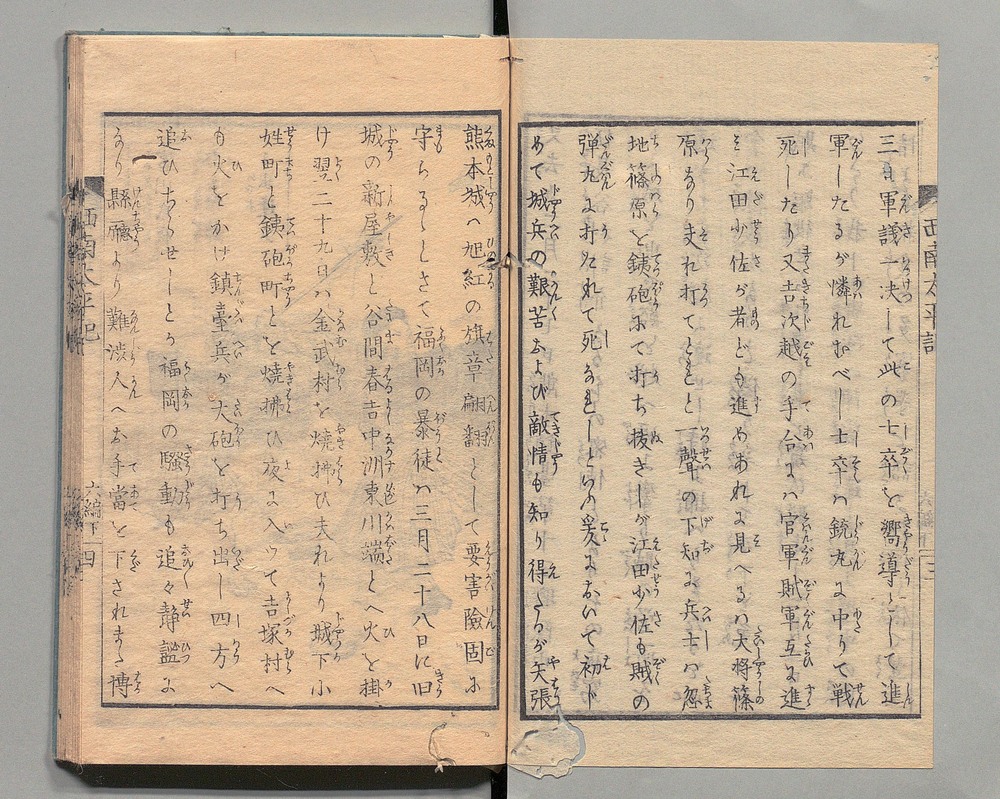 三日軍議一決して此の士卒を嚮導として進
軍したるが憐れむべし士卒ハ銃丸に中りて戦
死したり又吉次越の手合にハ官軍賊軍互に進
み江田少佐が者ども進めあれに見へるハ大将篠
原なり夫れ打てとれと一聲の下知に兵士ハ忽
地篠原を銕砲にて打ち抜きしが江田少佐も賊の
弾丸に打れて死なれしとの爰において初
めて城兵の艱苦および敵情も知り得たるが矢張
熊本城へ旭紅の旗章翩翻として要害險固に
守らるゝ
さて福岡の暴徒ハ三月二十八日に旧
城の新屋敷と谷間春吉中洲東川端とへ火を掛
け翌二十九日ハ金武村を燒拂ひ夫れより城下小
姓町と銕砲町とを燒拂ひ夜に入ッて吉塚村へ
も火をかけ鎮臺兵が大砲を打ち出し四方へ
追ひちらせしとか福岡の騒動も追々静謐に
なり縣廳より難渋人へお手當を下されまた博
西南太平記
六編下
四
西南太平記